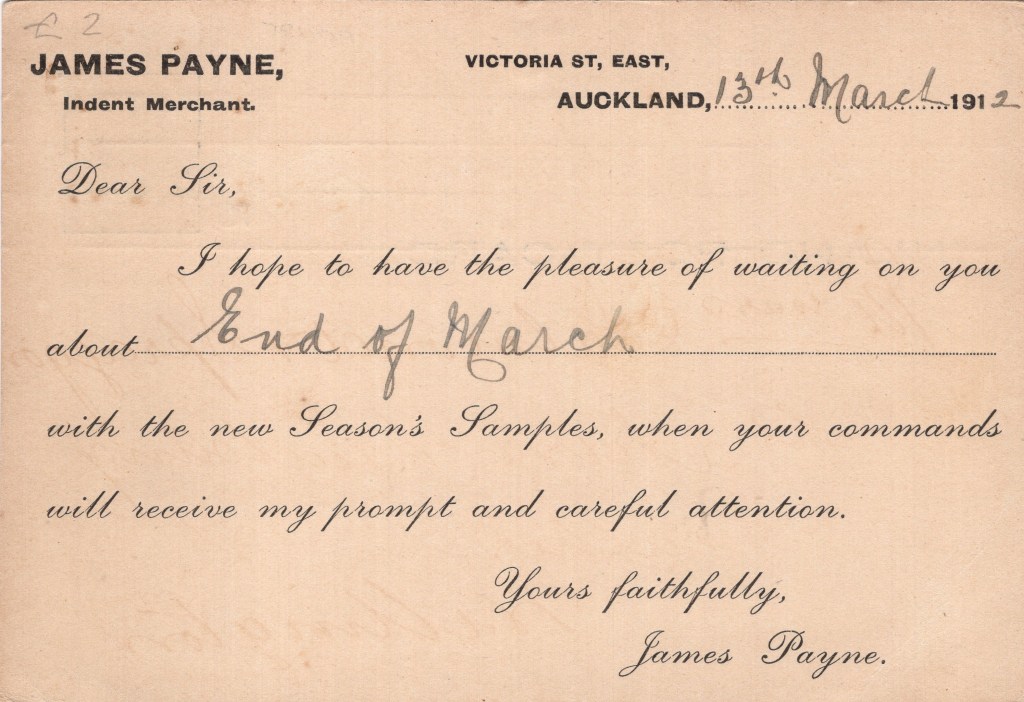 £ 2
JAMES PAYNE,
Indent Merchant.
VICTORIA ST, EAST,
AUCKLAND, 13th March 1912
Dear Sir,
I hope to have the pleasure of waiting on you
about End of March
with the new Season's Samples, when your commands
will receive my prompt and careful attention.
Yours faithfully,
James Payne.